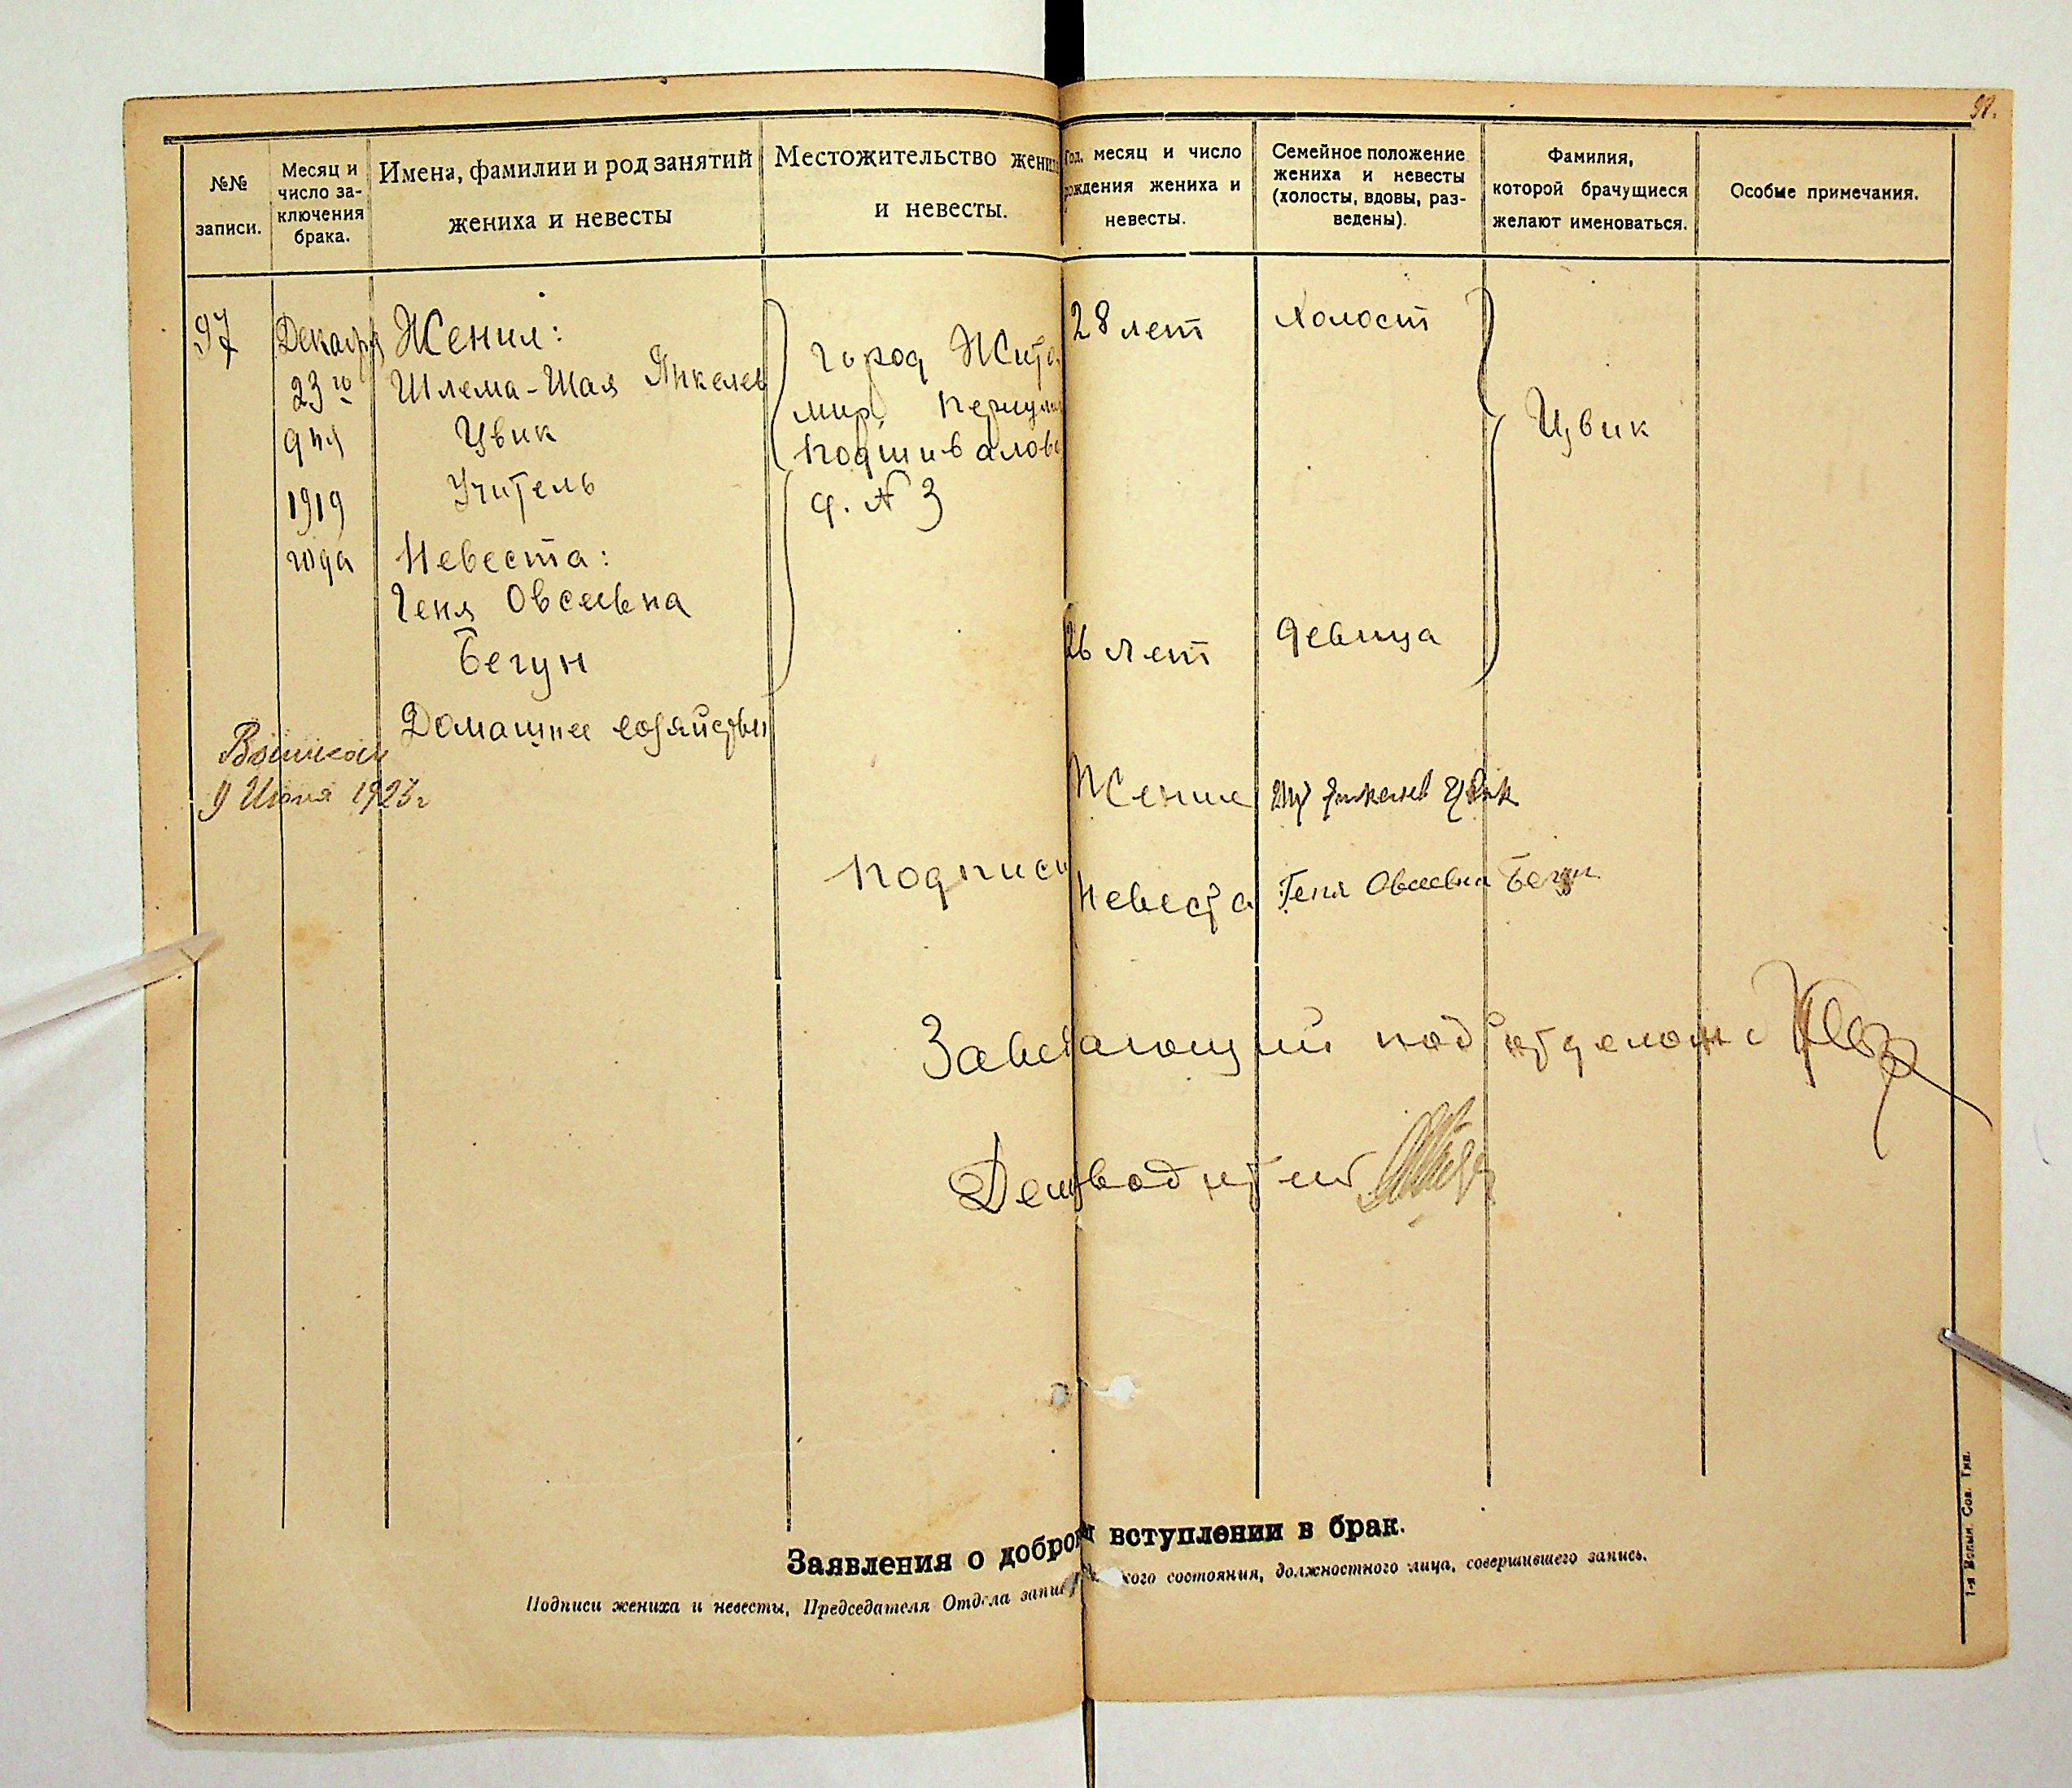 98.
№№ записи.
Месяц и число заключения брака.
Имена, фамилии и род занятий жениха и невесты
Местожительство жених и невесты.
Год, месяц и число рождения жениха и невесты.
Семейное положение жениха и невесты (холосты, вдовы, разведены).
Фамилия, которой брачущиеся желают именоваться.
Особые примечания.
97
Декабря
23го
дня
1919
года
Жених:
Шлема-Шая Янкелев
Цвик
Учитель
Невеста:
Геня Овсеевна
Бегун
Домашнее хозяйство
город Жито
мир
Подшивалов
д. № 3
28 лет
26 лет
Холост
девица
Цвик
9 Июня 1923 г
Подписи
Жених Янкелев Цвик
Невеста Геня Овсеевна Бегун
Заведающий подотделом
Заявления о добро вступлении в брак.
Подписи жениха и невесты, Председателя Отдела запис кого состояния, должностного лица, совершившего запись.
1-я Волын. Сов. Тип.